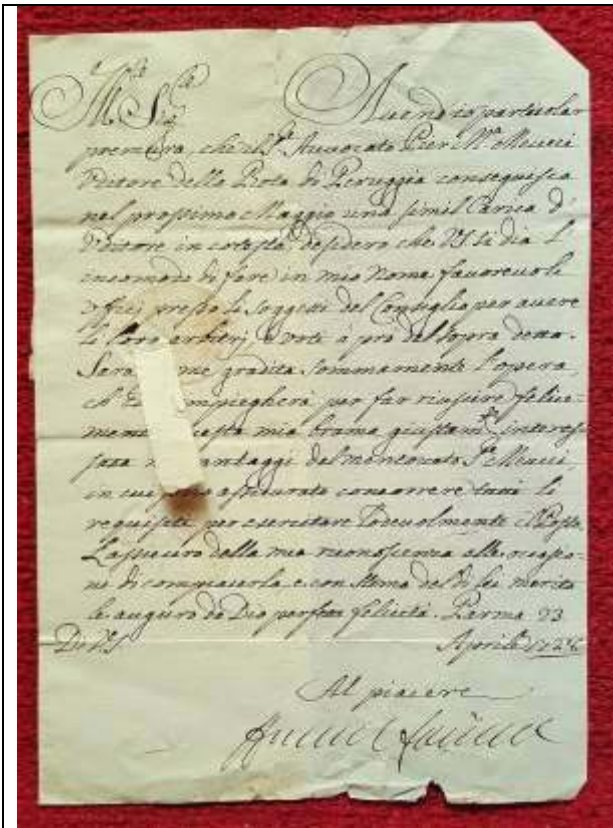 M.to Sig.re
Avendo io particolar
premura, che il S.r Avvocato Pier M.a Meucci
Uditore della Rota di Peruggia conseguisca
nel prossimo Maggio una simil Carica d'
Uditore in cotesta, desidero che VS si dia l'
incomodo di fare in mio nome favorevoli
offizj presso li Soggetti del Consiglio per avere
li loro arbitrj, e voti à prò del sopra detto.
Sarà me gradita sommamente l'opera,
impiegherà per far riuscire felice-
mente mia brama giustam.te interes
sata vantaggi del mentovato S.r Meucci,
in cui assicurato concorrere tutti li
requisiti per esercitare lodevolmente il Posto.
L'assicuro della mia riconoscenza alle
di compiacerla, e con stima del di lei merito
le auguro da Dio perfetta felicità. Parma 23
Di VS Aprile
Al piacere